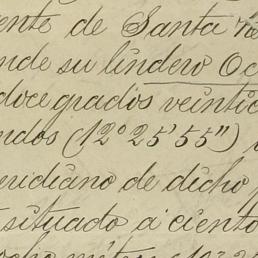 ente de Santa
nde su lindero Oc
doce grados veintic
ndos (12° 25' 55")
eridiano de dicho
situado a ciento